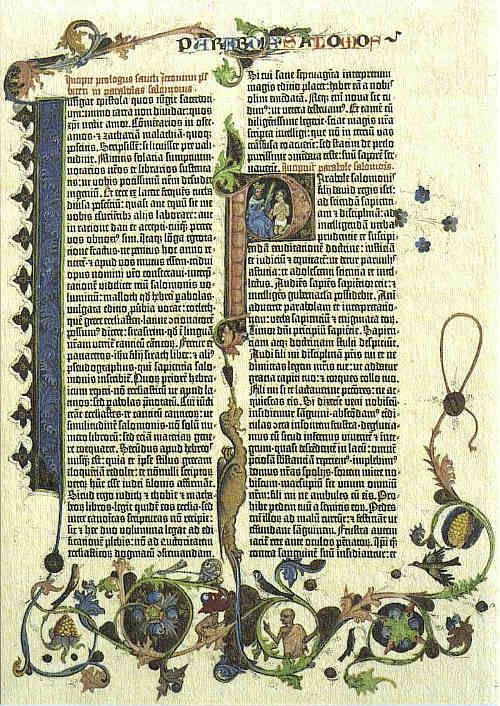 PARABOLE SALOMONIS
Incipit prologus sancti iheronimi pſ
biteri in parabolas salomonis
Iungat epistola quos iungit sacerdoti
um: immo carta non dividat: quos
xpi nectit amor. Cōmētarios in osee.
amos. et zachariā malachiā. quoq;
poscitis. Scripsissē: si licuisset pre vali
tudine. Mittitis solacia sumptuum.
notarios nr̄os et librarios sustenta
tis: ut vobis potissimū nr̄m desudet
ingeniū. Et ecce ex latere frequēs turba
diversa poscētiū: quasi aut equū sit me
vobis esuriētibꝫ alijs laborare: aut
in ratione dati et accepti. cuiꝙ preter
vos obnoxiꝰ sim. Itaq; lōga egrota
tione fractus. ne penitus hoc anno re
ticerē: et apud vos mutus essem. tridui
opus nomini vr̄o consecravi. interp̄
tationē videlicet triū salomonis vo
luminū: masloth qd̄ hebrei pabolas.
vulgata editio p̄vbia vocat: coeleth.
quē grece ecclesiasten. latine cōcionatorē
possumꝰ dicere: sirasirim. qd̄ ī linguā
nr̄am vertit̄ canticū cāticoꝝ. Fertur et
panaretos. ihu filij sirach liber: et aliꝰ
pseudographus. qui sapientia salo
monis inscribit̄. Quoꝝ priorē hebra
icum repperi. nō ecclesiasticū ut apud la
tinos: sed pabolas p̄notatū. Cui iūcti
erāt ecclesiastes. et canticū canticoꝝ: ut
similitudinē salomonis. nō solū nu
mero librorū: sed etiā materiaꝝ gene
re coequaret. Secūdus apud hebreos
nusq̄ est: quia et ipse stilus grecam
eloquentiā redolet: et nōnulli scriptoꝝ
veterū hūc esse iudei filonis affirmāt.
Sicut ergo iudith et thobie et macha
beoꝝ libros. legit quidē eos ecclia. sed
inter canonicas scripturas nō recipit:
sic et hec duo volumina legat ad edi
ficationē plebis: nō ad auctoritatem
ecclesiasticoꝝ dogmatū cōfirmandam.
Si cui sane septuaginta interpretum
magis editio placet: habet eā a nobis
olim emēdatā. Neq; enī nova sic cu
dimꝰ: ut vetera destruamꝰ. Et tamē cū
diligētissime legerit. sciat magis nr̄a
scripta intelligi: que nō in terciū vas
trāsfusa coacuerīt: sed statim de prelo
purissime cōmēdata teste: suū sapore ser
vaverīt. Incipiunt parabole salomonis
Parabole salomonis
filij david regis isrl̄:
ad sciendā sapien
tiam et disciplinā: ad
intelligendā verba
prudentie et suscipi
endā eruditionē doctrine: iusticiā
et iudiciū et equitatē: ut detur parvulis
astutia: et adolescenti sciencia et intel
lectus. Audiēs sapiēs sapiētior erit: et
intelligēs gubernacla possidebit. Ani
advertet parabolam et interpretatio
nem: verba sapientiū et enigmata eoꝝ.
Timor dn̄i principiū sapiētie. Sapien
tiam atq; doctrinam stulti despiciūt.
Audi fili mi disciplinā pr̄is tui et ne
dimittas legem mr̄is tue: ut addatur
gracia capiti tuo: et torques collo tuo.
Fili mi si te lactaverint pctōres: ne ac
quiescas eis. Si dixerīt veni nobiscū.
insidiemur sāguini. abscōdamꝰ tēdi
culas cōtra insontem frustra. deglutia
mus eū sicut infernus viventē et inte
grum. quasi descēdentē in lacū: omnē
p̄ciosā substātiā repiemꝰ. implebimꝰ
domus nr̄as spolijs. sortem mitte no
biscum. marsupiū sit unum omniū
nr̄m: fili mi ne ambules cū eis. Pro
hibe pedem tuū a semitis eoꝝ. Pedes
eni illoꝝ ad malū currūt: et festināt ut
effundant sāguinem. Frustra autem
iacit̄ rete ante oculos pēnatoꝝ. Ipi q̄
contra sanguinē suū insidiantur: et